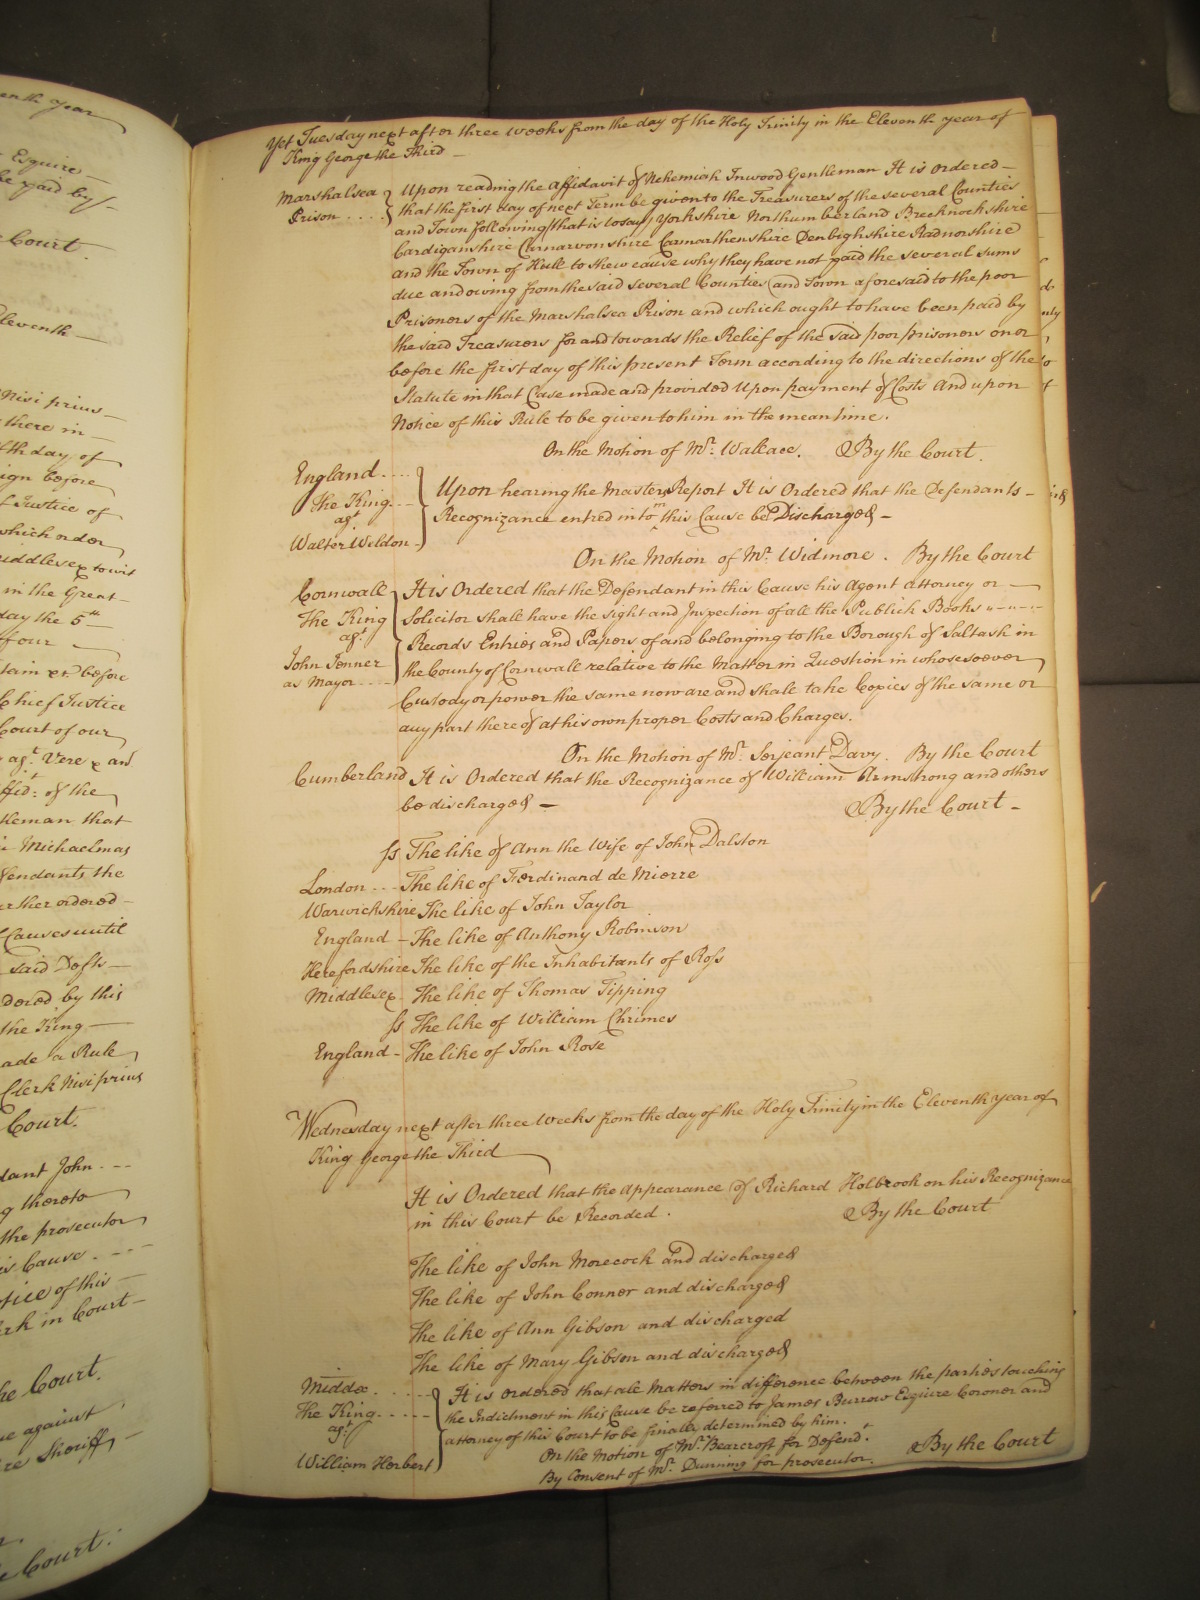 enth Year
Esquire
be paid by
Court.
leventh
Nisi prius
there in
th day of
ign before
f Justice of
which order
iddlesex to wit
in the Great
day the 5th
four
tain &c before
Chief Justice
Court of our
agt. Vere & an
ffidt: of the
tleman that
Michaelmas
fendants the
rther ordered
Causes until
said Defts
dered by this
the King
ade a Rule
Clerk Nisi prius
Court.
dant John
g thereto
the prosecutor
is Cause
tice of this
rk in Court
he Court.
ue against
re Sheriff
Court.
Yet Tuesday next after three weeks from the day of the Holy Trinity in the Eleventh year of
King George the Third
Marshalsea Upon reading the Affidavit of Nehemiah Inwood Gentleman It is ordered
Prison that the first day of next Term be given to the Treasurers of the several Counties
and Town following (that is to say) Yorkshire Northumberland Brecknockshire
Cardiganshire Carnarvonshire Carmarthenshire Denbighshire Radnorshire
and the Town of Hull to shew cause why they have not paid the several sums
due and owing from the said several Counties and Town aforesaid to the poor
Prisoners of the Marshalsea Prison and which ought to have been paid by
the said Treasurers for and towards the Relief of the said poor prisoners on or
before the first day of this present Term according to the directions of the
Statute in that Case made and provided Upon payment of Costs And upon
Notice of this Rule to be given to him in the mean time.
On the Motion of Mr. Wallace. By the Court.
England
The King Upon hearing the Masters Report It is Ordered that the Defendants
agt Recognizance entred into in this Cause be Discharged
Walter Weldon
On the Motion of Mr. Widmore. By the Court
Cornwall It is Ordered that the Defendant in this Cause his Agent Attorney or
The King Solicitor shall have the Sight and Inspection of all the Publick Books
agt. Records Entries and Papers of and belonging to the Borough of Saltash in
John Jenner the County of Cornwall relative to the Matter in Question in whosesoever
as Mayor Custody or power the same now are and shall take Copies of the same or
any part thereof at his own proper Costs and Charges.
On the Motion of Mr. Serjeant Davy. By the Court
Cumberland It is Ordered that the Recognizance of William Armstrong and others
be discharged By the Court
ss The like of Ann the Wife of John Dalston
London The like of Ferdinand de Mierre
Warwickshire The like of John Taylor
England The like of Anthony Robinson
Herefordshire The like of the Inhabitants of Ross
Middlesex The like of Thomas Tipping
ss The like of William Chrimes
England The like of John Rose
Wednesday next after three Weeks from the day of the Holy Trinity in the Eleventh year of
King George the Third
It is Ordered that the Appearance of Richard Holbrook on his Recognizance
in this Court be Recorded. By the Court
The like of John Morecock and discharged
The like of John Conner and discharged
The like of Ann Gibson and discharged
The like of Mary Gibson and discharged
Middx. It is ordered that all Matters in difference between the parties touching
The King the Indictment in this Cause be referred to James Burrow Esquire Coroner and
agt. attorney of this Court to be finally determined by him.
William Herbert On the Motion of Mr. Bearcroft for Defendt. By the Court
By Consent of Mr. Dunning for prosecutor.